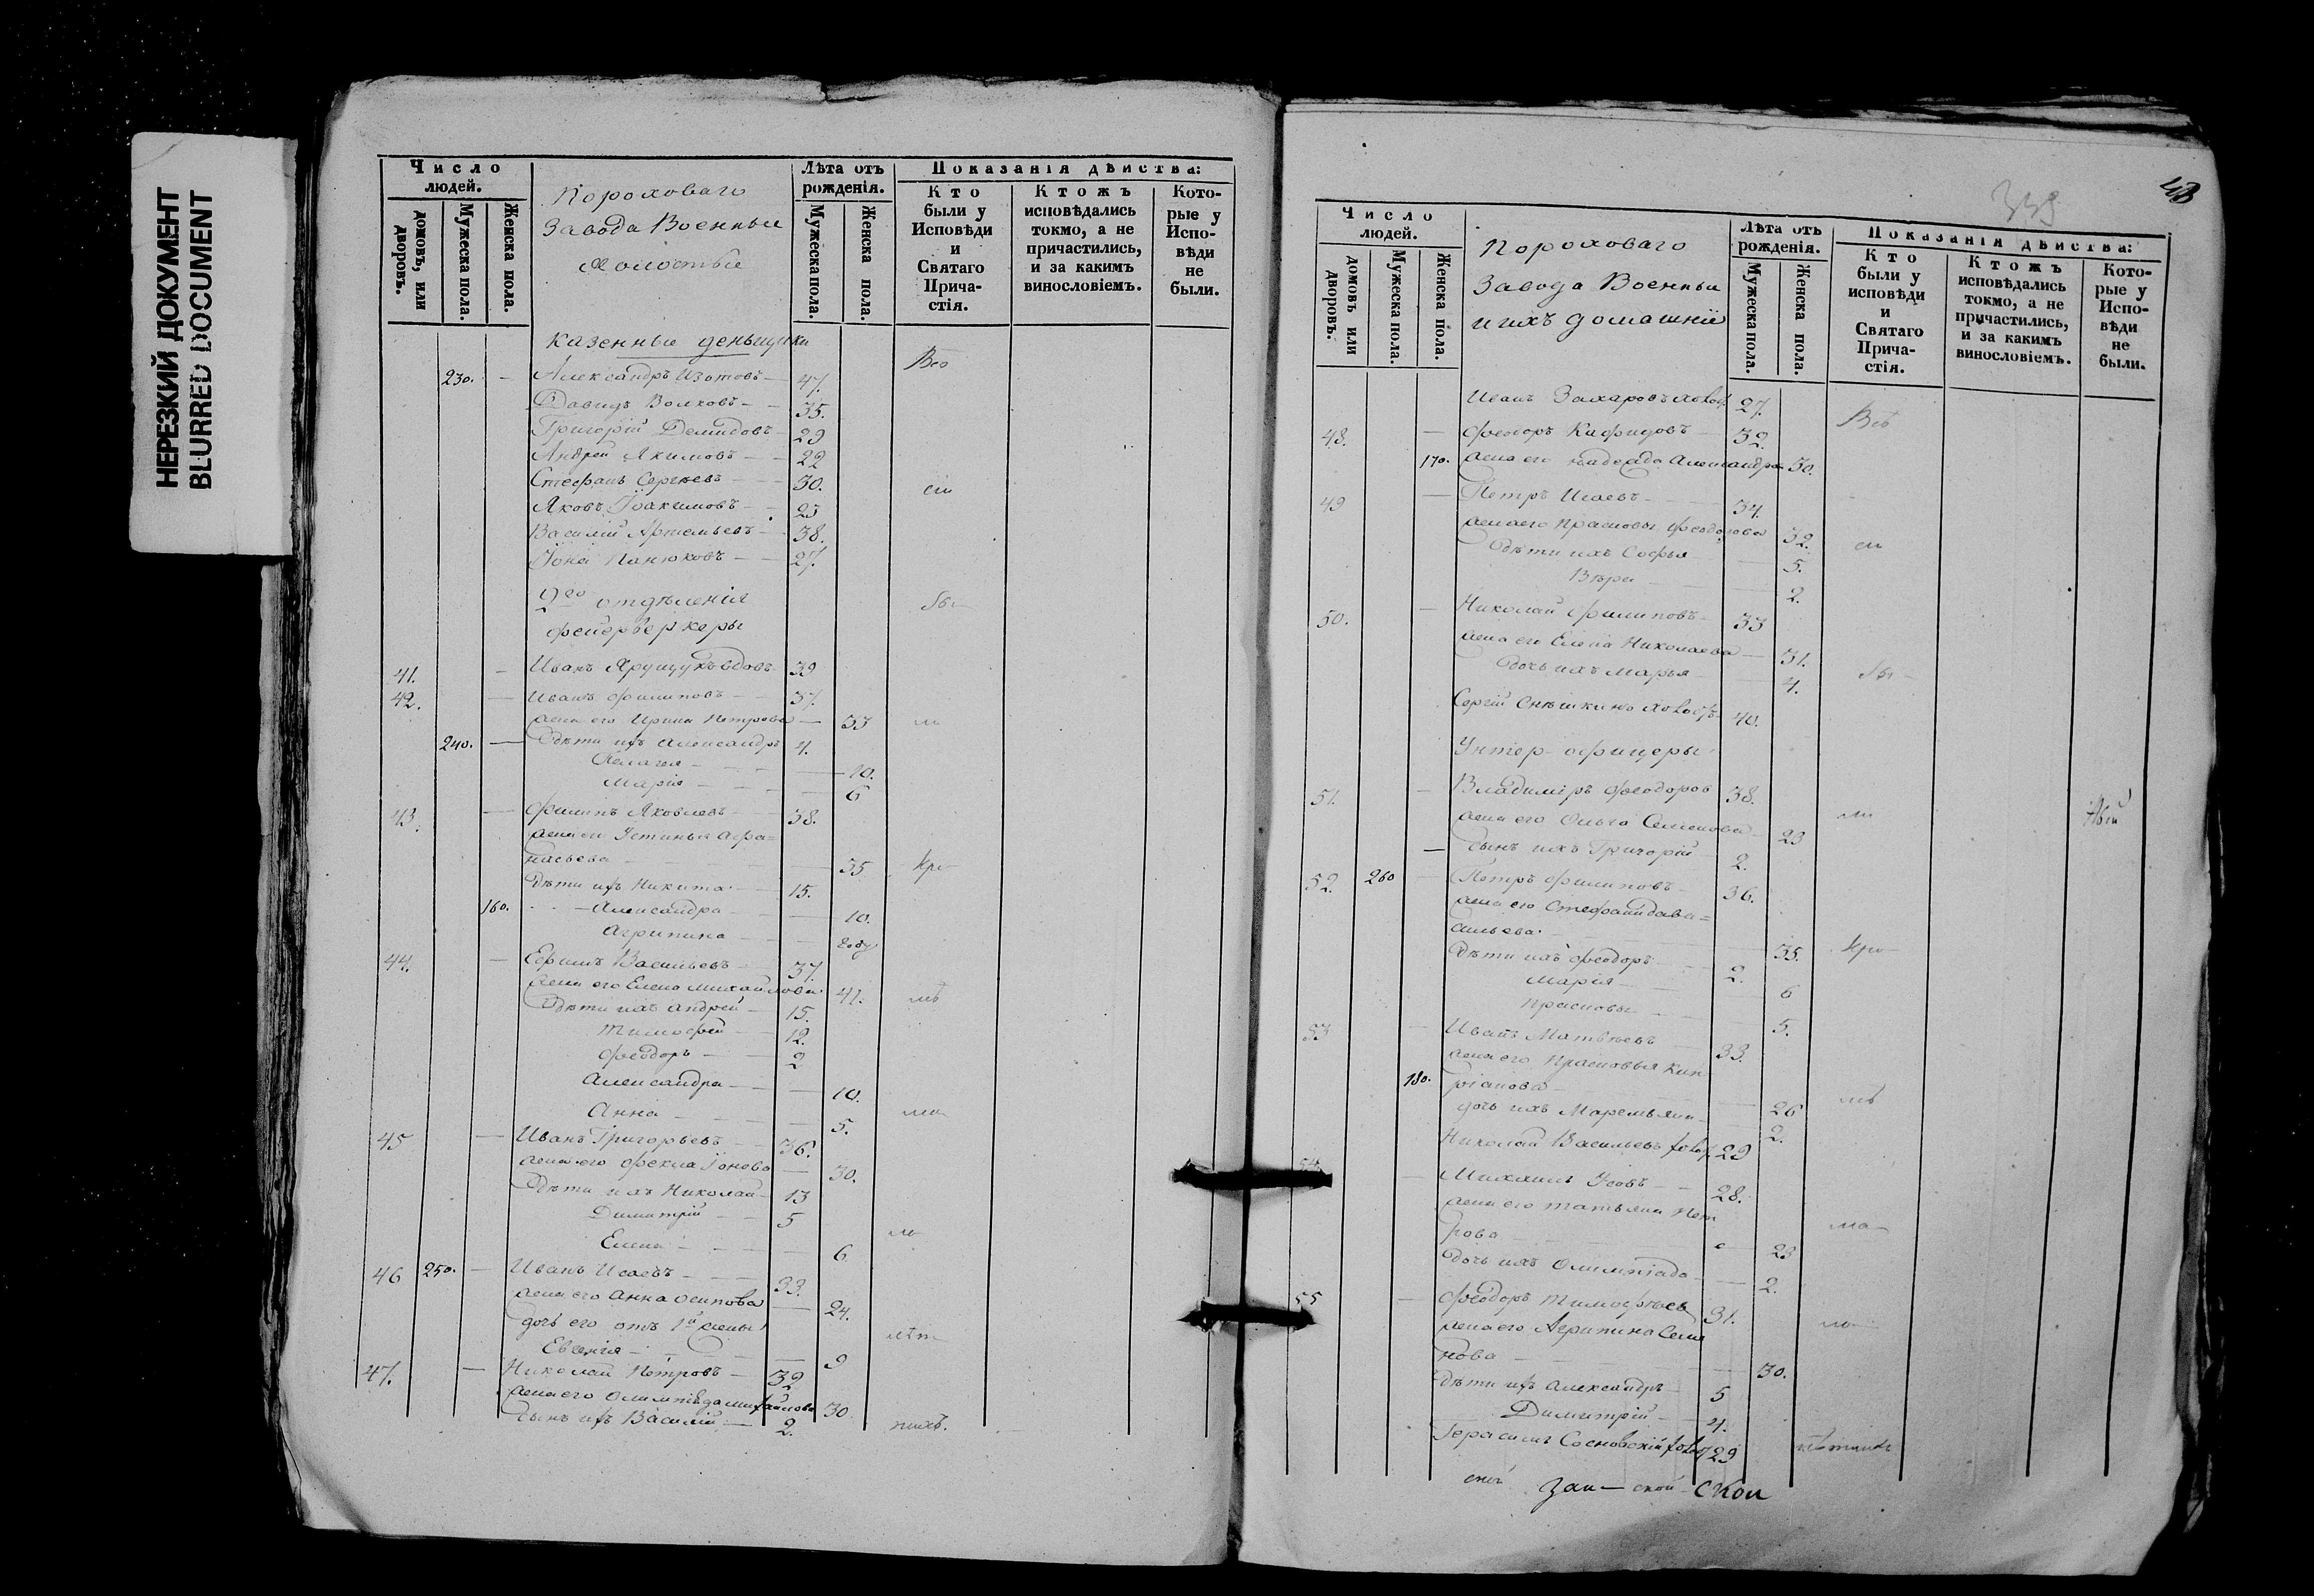 НЕРЕЗКИЙ ДОКУМЕНТ
BLURRED DOCUMENT
Число людей.
домовъ, или дворовъ.
Мужеска пола.
Женска пола.
Пороховаго
Завода Военные
Холостые
Лѣта отъ рожденія.
Мужеска пола.
Женска пола.
Показанія дѣйства:
Кто были у Исповѣди и Святаго Прича-стія.
Ктожъ исповѣдались токмо, а не причастились, и за какимъ винословіемъ.
Кото-рые у Испо-вѣди не были.
Казенные деньщики
230. — Александръ Изотовъ — 47.
Давидъ Волковъ — 35.
Григорій Демидовъ — 29
Андрей Якимовъ — 22
Стефанъ Сергѣевъ — 30.
Яковъ Іоакимовъ — 23
Василій Артемьевъ — 38.
Іона Панюковъ — 27.
2го отдѣленія
фейерверкеры
41. — Иванъ вдовъ 39
42. — Иванъ Филиповъ — 37.
жена его Ирина Петрова — 33
240. — дѣти ихъ Александръ 4.
Пелагея — 10.
Марія — 6
43. — Филипъ Яковлевъ — 38.
жена его Устинья Афа=
насьева — 35
дѣти ихъ Никита — 15.
160. — Александра — 10.
Агрипина —
44. — Ефимъ Васильевъ — 37.
жена его Елена Михайлова 41.
дѣти ихъ Андрей — 15.
Тимофей — 12.
Феодоръ — 2
Александра — 10.
Анна — 5.
45 — Иванъ Григорьевъ — 36.
жена его Фекла Іонова — 30.
дѣти ихъ Николай 13
Димитрій — 5
Елена — 6
46 250. — Иванъ Исаевъ — 33.
жена его Анна Осипова — 24.
дочь его отъ 1й жены
Евгенія — 9
47. — Николай Петровъ — 32
жена его Олимпіада Михайлова 30
сынъ ихъ Василій — 2.
Число людей.
домовъ или дворовъ.
Мужеска пола.
Женска пола.
Пороховаго
Завода Военные
и ихъ домашніе
Лѣта отъ рожденія.
Мужеска пола.
Женска пола.
Показанія дѣйства:
Кто были у исповѣди и Святаго Прича-стія.
Ктожъ исповѣдались токмо, а не причастились, и за какимъ винословіемъ.
Кото-рые у Испо-вѣди не были.
Иванъ Захаровъ холост 27. Всѣ
48. — Феодоръ 32.
170. жена его Надежда Александра 30.
49 — Петръ Исаевъ — 34.
жена его Прасковья Феодорова 32.
дѣти ихъ Софья — 5.
Вѣра — 2.
50. — Николай Филиповъ — 33
жена его Елена Николаева — 31.
дочь ихъ Марья — 4.
Сергій холостъ 40.
Унтер-офицеры
51. — Владиміръ Феодоров 38.
жена его Ольга Семенова 23
— сынъ ихъ Григорій 2.
52. 260 — Петръ Филиповъ — 36.
жена его Стефанида Ва=
сильева 35.
дѣти ихъ Феодоръ 2.
Марія — 6
Прасковья — 5.
53 — Иванъ Матвѣевъ — 33.
жена его Прасковья Кип
180. ріанова — 26
дочь ихъ Маремьяна 2.
Николай Васильевъ холост 29
54 — Михаилъ Усовъ — 28.
жена его Татьяна Пет
рова — 23
дочь ихъ Олимпіада — 2.
55 — Феодоръ Тимофѣев 31.
жена его Агрипина Семе
нова — 30.
дѣти ихъ Александръ 5
Димитрій — 4.
Герасимъ Сосновскій холост 29